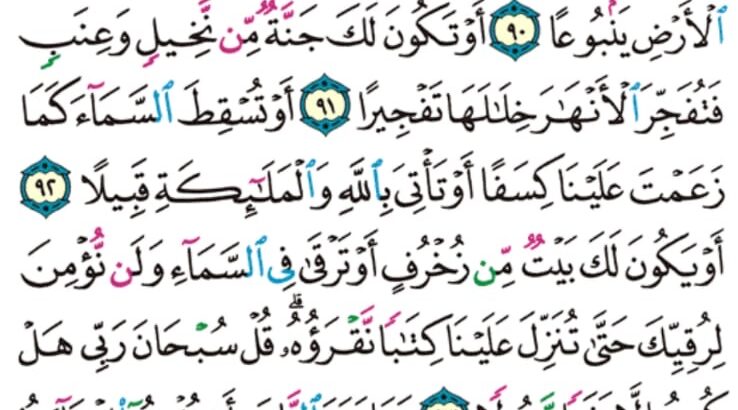 ٱلْأَرْضِ يَنۢبُوعًا ٩٠ أَوْ تَكُونَ لَكَ جَنَّةٌ مِّن نَّخِيلٍ وَعِنَبٍ
فَتُفَجِّرَ ٱلْأَنْهَـٰرَ خِلَـٰلَهَا تَفْجِيرًا ٩١ أَوْ تُسْقِطَ ٱلسَّمَآءَ كَمَا
زَعَمْتَ عَلَيْنَا كِسَفًا أَوْ تَأْتِيَ بِٱللَّهِ وَٱلْمَلَـٰٓئِكَةِ قَبِيلًا ٩٢
أَوْ يَكُونَ لَكَ بَيْتٌ مِّن زُخْرُفٍ أَوْ تَرْقَىٰ فِي ٱلسَّمَآءِ وَلَن نُّؤْمِنَ
لِرُقِيِّكَ حَتَّىٰ تُنَزِّلَ عَلَيْنَا كِتَـٰبًا نَّقْرَؤُهُۥ ۗ قُلْ سُبْحَانَ رَبِّي هَلْ